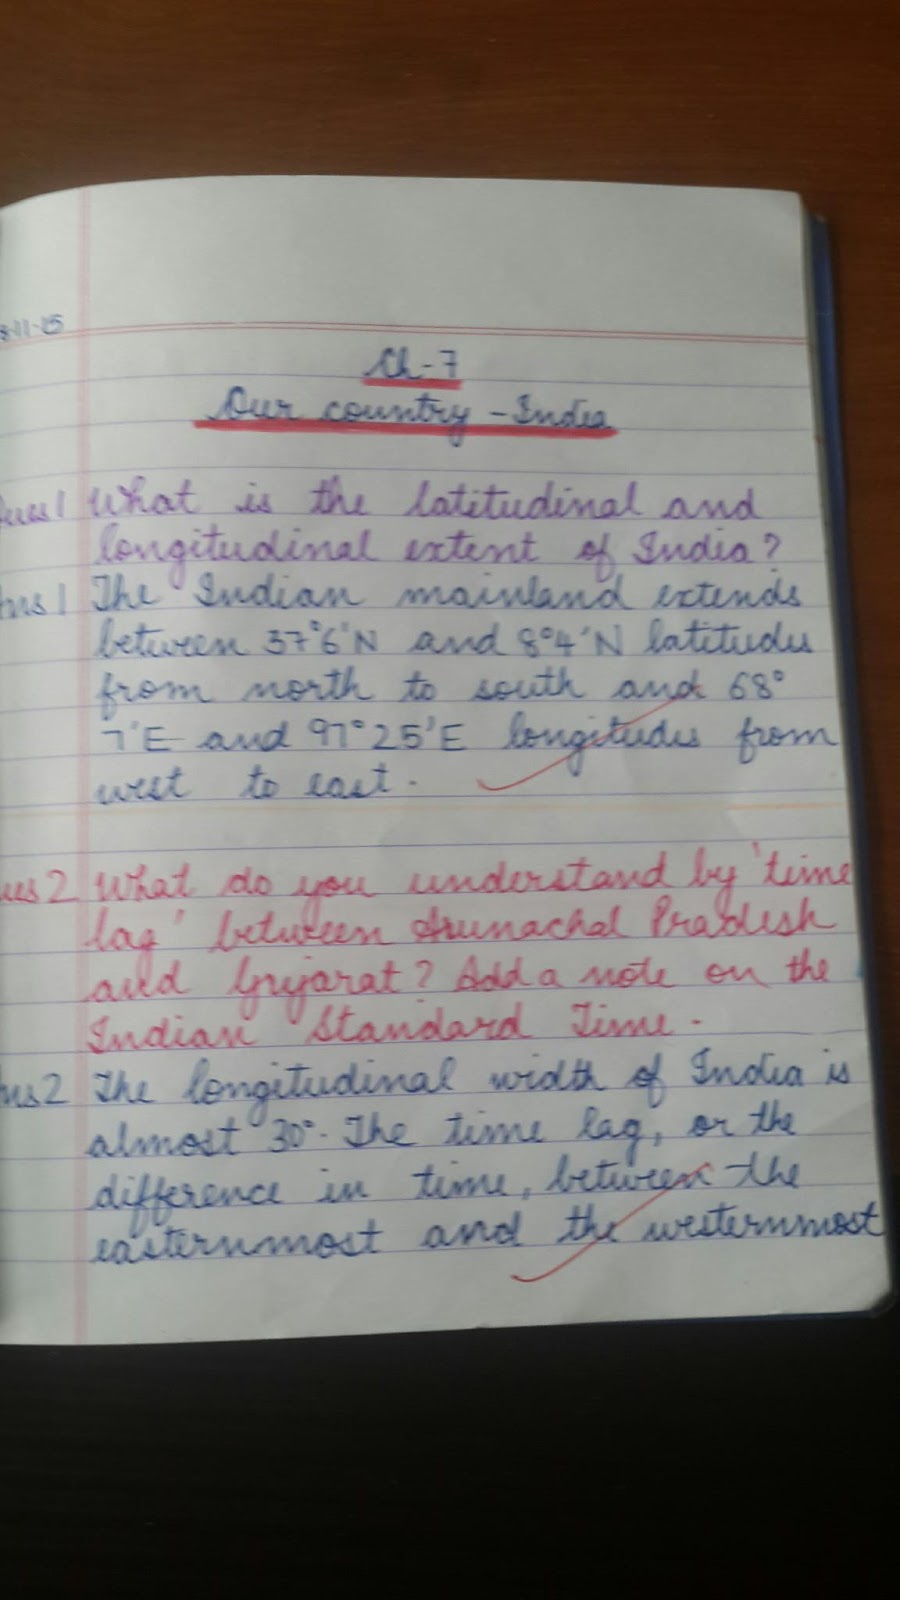 8-11-15
Ch-7
Our country - India
Ques 1 What is the latitudinal and
longitudinal extent of India?
Ans 1 The Indian mainland extends
between 37°6'N and 8°4'N latitudes
from north to south and 68°
7'E and 97°25'E longitudes from
west to east.
Ques 2 What do you understand by 'time
lag' between Arunachal Pradesh
and Gujarat? Add a note on the
Indian Standard Time.
Ans 2 The longitudinal width of India is
almost 30°. The time lag, or the
difference in time, between the
easternmost and the westernmost